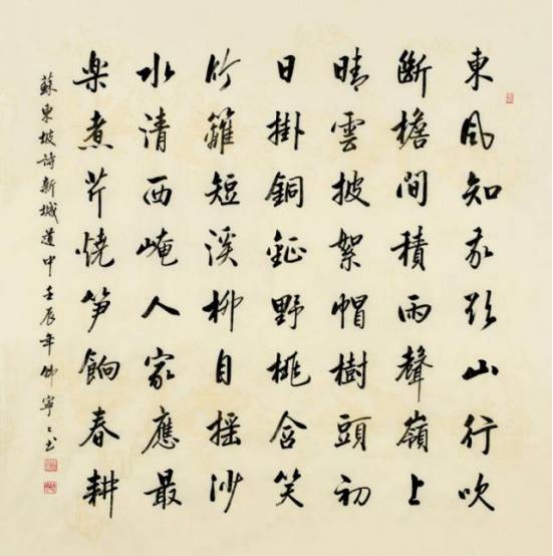 東風知我欲山行吹
斷檐間積雨聲嶺上
晴雲披絮帽樹頭初
日掛銅鉦野桃含笑
竹籬短溪柳自摇沙
水清西崦人家應最
楽煮芹燒笋餉春耕
蘇東坡詩新城道中壬辰年寧〻书